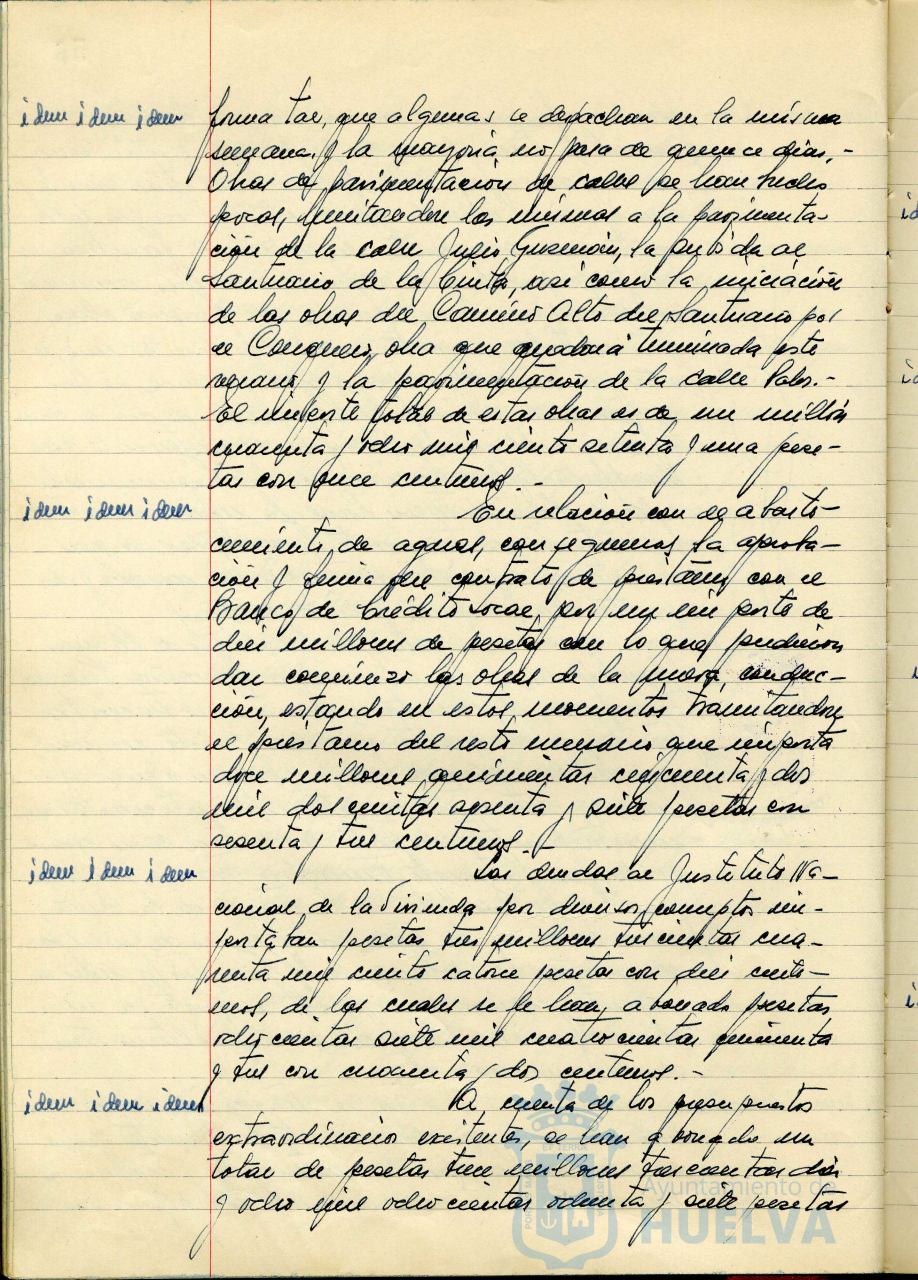 idem idem idem
forma tal, que algunas se despachan en la misma
semana y la mayoría no pasa de quince días.-
Obras de pavimentación de calles se han hecho
pocas, limitandose las mismas a la pavimenta-
ción de la calle Julio Guzmán, la subida al
Santuario de la Cinta, así como la iniciación
de las obras del Camino Alto del Santuario por
el Conquero, obra que quedará terminada este
verano y la pavimentación de la calle Palos.-
El importe total de estas obras es de un millón
cuarenta y ocho mil ciento setenta y una pese-
tas con once centimos.-
idem idem idem
En relación con el abaste-
cimiento de aguas, conseguimos la aproba-
ción y firma del contrato de prestamo con el
Banco de Crédito Local, por un importe de
diez millones de pesetas con lo que pudieron
dar comienzo las obras de la nueva conduc-
ción, estando en estos momentos tramitandose
el préstamo del resto necesario que importa
doce millones quinientas cincuenta y dos
mil doscientas y siete pesetas con
sesenta y tres centimos.-
idem idem idem
Las deudas al Instituto Na-
cional de la Vivienda por diversos conceptos im-
portaban pesetas tres millones trescientas cua-
renta mil ciento catorce pesetas con diez centi-
mos, de las cuales se le han abonado pesetas
ochocientas siete mil cuatrocientas
y tres con cuarenta y dos centimos.-
idem idem idem
A cuenta de los presupuestos
extraordinarios existentes, se han abonado un
total de pesetas millones trescientas
y ocho mil ochocientas ochenta y siete pesetas
Ayuntamiento de
HUELVA